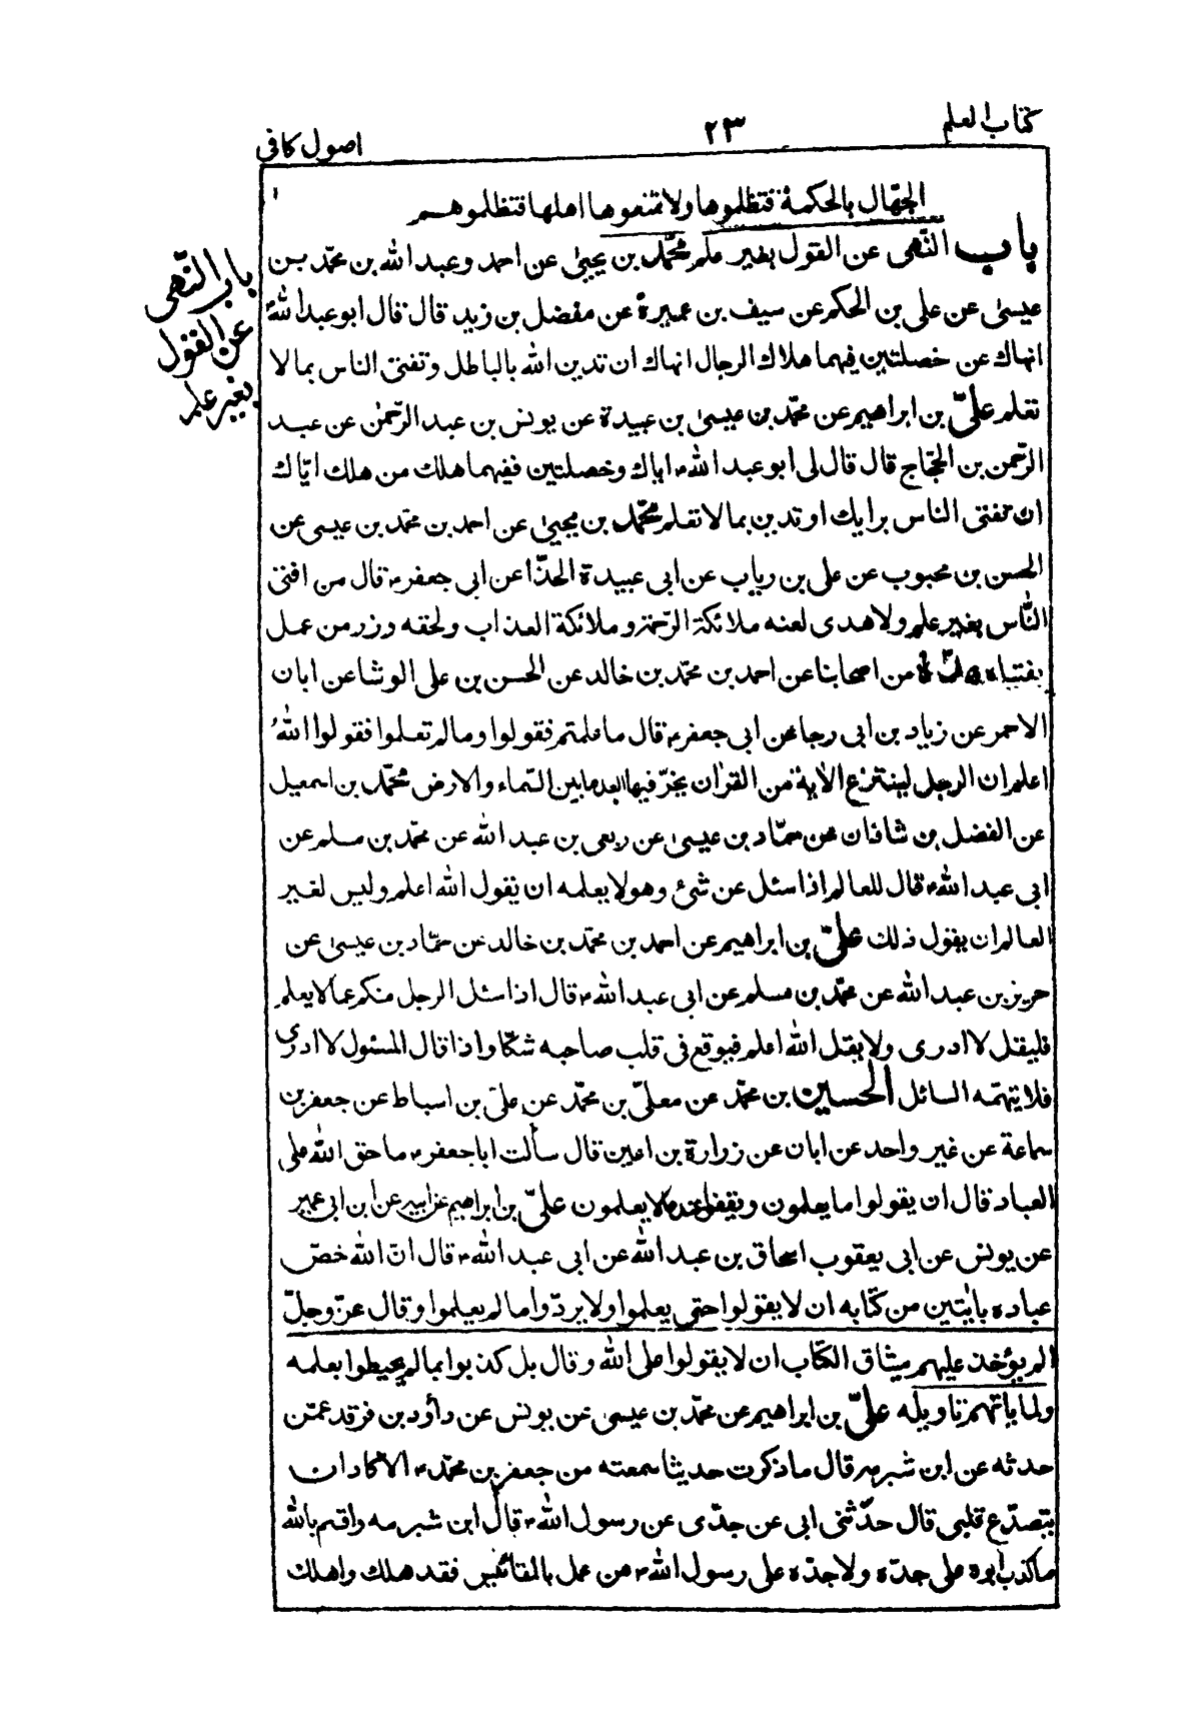 كتاب العلم
٢٣
اصول كافى
الجهّال بالحكمة فتظلموها ولا تمنعوها اهلها فتظلموهم
باب النّهى عن القول بغير علم محمّد بن يحيىٰ عن احمد وعبد الله بن محمّد بن
باب النّهى
عن القول
بغير علم
عيسىٰ عن على بن الحكم عن سيف بن عميرة عن مفضل بن زيد قال قال ابو عبد الله ع
انهاك عن خصلتين فيهما هلاك الرجال انهاك ان تدين الله بالباطل وتفتى الناس بما لا
تعلم علىّ بن ابراهيم عن محمّد بن عيسىٰ بن عبيدة عن يونس بن عبد الرّحمٰن عن عبد
الرّحمن بن الحجّاج قال قال لى ابو عبد الله ع اياك وخصلتين ففيهما هلك من هلك ايّاك
ان تفتى الناس برايك او تدين بما لا تعلم محمّد بن يحيىٰ عن احمد بن محمّد بن عيسى عن
الحسن بن محبوب عن على بن رياب عن ابى عبيدة الحذّا عن ابى جعفر ع قال من افتى
النّاس بغير علم ولا هدى لعنه ملائكة الرّحمة وملائكة العذاب ولحقه وزر من عمل
بفتياه عدّة من اصحابنا عن احمد بن محمّد بن خالد عن الحسن بن على الوشا عن ابان
الاحمر عن زياد بن ابى رجا عن ابى جعفر ع قال ما علمتم فقولوا وما لم تعلموا فقولوا اللهُ
اعلم ان الرجل لينتزع الاٰية من القرٰان يخرّ فيها ابعد ما بين السّماء والارض محمّد بن اسمعيل
عن الفضل بن شاذان عن حمّاد بن عيسىٰ عن ربعى بن عبد الله عن محمّد بن مسلم عن
ابى عبد الله ع قال للعالم اذا سئل عن شئ وهو لا يعلمه ان يقول الله اعلم وليس لغير
العالم ان يقول ذلك علىّ بن ابراهيم عن احمد بن محمّد بن خالد عن حمّاد بن عيسىٰ عن
حريز بن عبد الله عن محمّد بن مسلم عن ابى عبد الله ع قال اذا سئل الرجل منكم عما لا يعلم
فليقل لا ادرى ولا يقل الله اعلم فيوقع فى قلب صاحبه شكّا واذا قال المسئول لا ادرى
فلا يتهمّه السائل الحسين بن محمّد عن معلىّ بن محمّد عن علىّ بن اسباط عن جعفر بن
سماعة عن غير واحد عن ابان عن زرارة بن اعين قال سألت ابا جعفر ع ما حق الله على
العباد قال ان يقولوا ما يعلمون ويقفوا عند ما لا يعلمون علىّ بن ابراهيم عن ابيه عن ابن ابى عمير
عن يونس عن ابى يعقوب اسحاق بن عبد الله عن ابى عبد الله ع قال انّ الله خصّ
عباده بايٰتين من كتابه ان لا يقولوا حتى يعلموا ولا يردّوا ما لم يعلموا وقال عزّ وجلّ
الم يؤخذ عليهم ميثاق الكتاب ان لا يقولوا على الله وقال بل كذبوا بما لم يحيطوا بعلمه
ولما ياتهم تاويله علىّ بن ابراهيم عن محمّد بن عيسىٰ عن يونس عن داود بن فرقد عمّن
حدثه عن ابن شبرمه قال ما ذكرت حديثا سمعته من جعفر بن محمّد ع الا كاد ان
يتصدّع قلبى قال حدّثنى ابى عن جدّى عن رسول الله ص قال ابن شبرمه واقسم بالله
ما كذب ابوه على جدّه ولا جدّه على رسول الله ص من عمل بالمقائيس فقد هلك واهلك